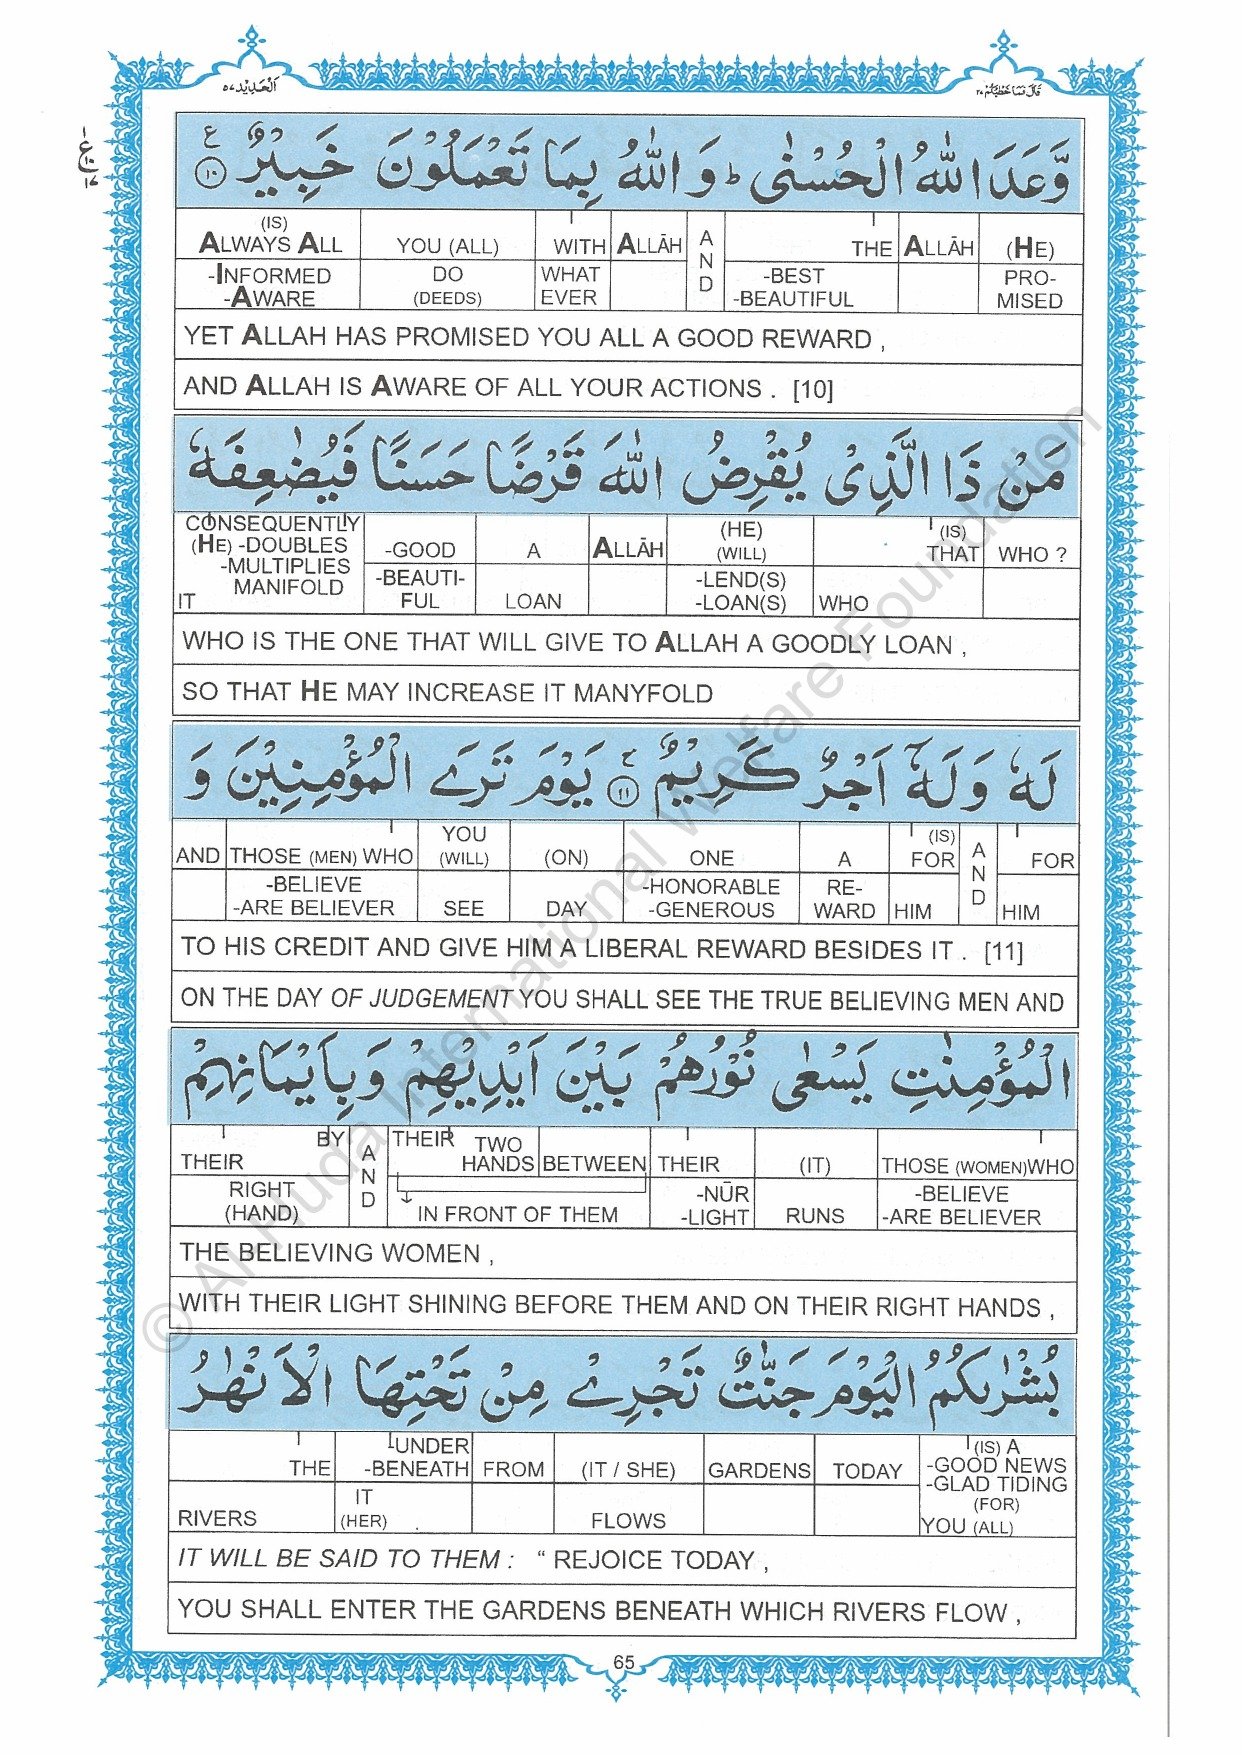 اَلْحَدِيْد ٥٧
قَالَ فَمَا خَطْبُكُمْ ٢٧
١
ع
١٠
١٧
وَّعَدَ اللّٰهُ الْحُسْنٰى ؕ وَ اللّٰهُ بِمَا تَعْمَلُوْنَ خَبِيْرٌ ﴿١٠﴾ ع
(IS) ALWAYS ALL YOU (ALL) WITH ALLĀH AND THE ALLĀH (HE)
-INFORMED -AWARE DO (DEEDS) WHAT EVER -BEST -BEAUTIFUL PRO- MISED
YET ALLAH HAS PROMISED YOU ALL A GOOD REWARD ,
AND ALLAH IS AWARE OF ALL YOUR ACTIONS . [10]
مَنْ ذَا الَّذِىْ يُقْرِضُ اللّٰهَ قَرْضًا حَسَنًا فَيُضٰعِفَهٗ
CONSEQUENTLY (HE) -DOUBLES -MULTIPLIES MANIFOLD -GOOD A ALLĀH (HE) (WILL) (IS) THAT WHO ?
IT -BEAUTI- FUL LOAN -LEND(S) -LOAN(S) WHO
WHO IS THE ONE THAT WILL GIVE TO ALLAH A GOODLY LOAN ,
SO THAT HE MAY INCREASE IT MANYFOLD
لَهٗ وَ لَهٗۤ اَجْرٌ كَرِيْمٌ ﴿١١﴾ ۚ يَوْمَ تَرَى الْمُؤْمِنِيْنَ وَ
AND THOSE (MEN) WHO YOU (WILL) (ON) ONE A (IS) FOR AND FOR
-BELIEVE -ARE BELIEVER SEE DAY -HONORABLE -GENEROUS RE- WARD HIM HIM
TO HIS CREDIT AND GIVE HIM A LIBERAL REWARD BESIDES IT . [11]
ON THE DAY OF JUDGEMENT YOU SHALL SEE THE TRUE BELIEVING MEN AND
الْمُؤْمِنٰتِ يَسْعٰى نُوْرُهُمْ بَيْنَ اَيْدِيْهِمْ وَبِاَيْمَانِهِمْ
BY THEIR AND THEIR TWO HANDS BETWEEN THEIR (IT) THOSE (WOMEN) WHO
RIGHT (HAND) IN FRONT OF THEM -NŪR -LIGHT RUNS -BELIEVE -ARE BELIEVER
THE BELIEVING WOMEN ,
WITH THEIR LIGHT SHINING BEFORE THEM AND ON THEIR RIGHT HANDS ,
بُشْرٰىكُمُ الْيَوْمَ جَنّٰتٌ تَجْرِىْ مِنْ تَحْتِهَا الْاَنْهٰرُ
THE -UNDER -BENEATH FROM (IT / SHE) GARDENS TODAY (IS) A -GOOD NEWS -GLAD TIDING
RIVERS IT (HER) FLOWS (FOR) YOU (ALL)
IT WILL BE SAID TO THEM : “ REJOICE TODAY ,
YOU SHALL ENTER THE GARDENS BENEATH WHICH RIVERS FLOW ,
65
© Al Huda International Welfare Foundation